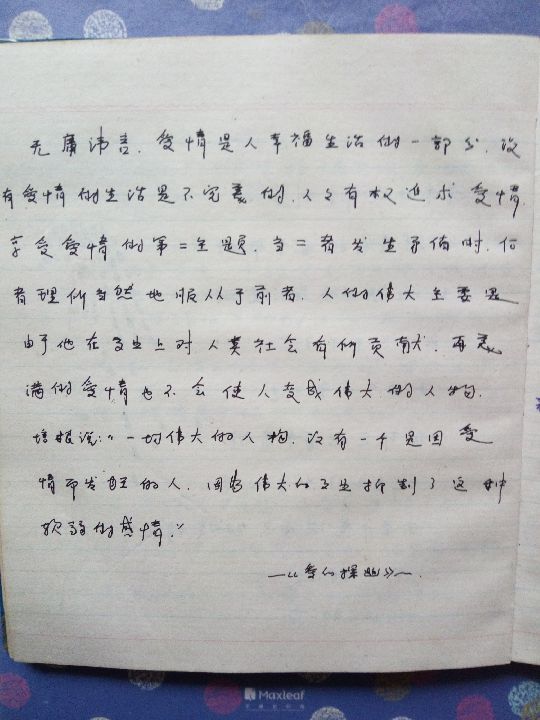 无庸讳言,爱情是人幸福生活的一部分,没
有爱情的生活是不完美的,人人有权追求爱情,
享受爱情的第二主题,当二者发生矛盾时,后
者理所当然地服从于前者,人的伟大主要是
由于他在事业上对人类社会有所贡献,再美
满的爱情也不会使人变成伟大的人物,
培根说:"一切伟大的人物,没有一个是因爱
情而发狂的人,因为伟大的事业抑制了这种
软弱的感情."
——《爱的探幽》—.
Maxleaf